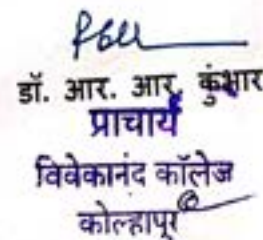 डॉ. आर. आर. कुंभार
प्राचार्य
विवेकानंद कॉलेज
कोल्हापुर